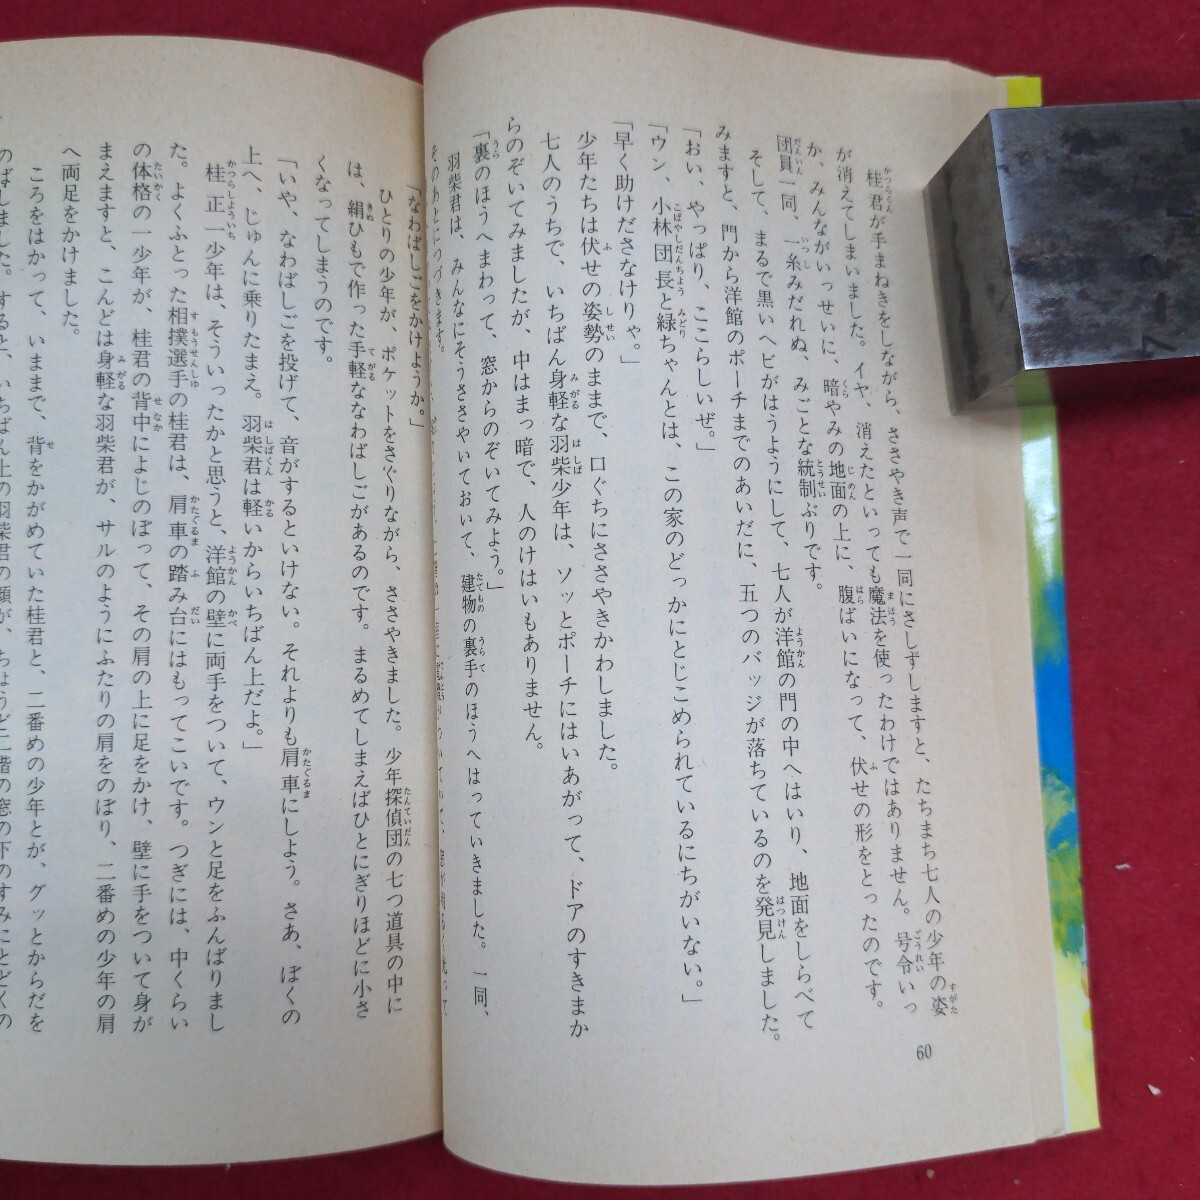 桂君が手まねきをしながら、ささやき声で一同にさしずしますと、たちまち七人の少年の姿
が消えてしまいました。イヤ、消えたといっても魔法を使ったわけではありません。号令いっ
か、みんながいっせいに、暗やみの地面の上に、腹ばいになって、伏せの形をとったのです。
団員一同、一糸みだれぬ、みごとな統制ぶりです。
そして、まるで黒いヘビがはうようにして、七人が洋館の門の中へはいり、地面をしらべて
みますと、門から洋館のポーチまでのあいだに、五つのバッジが落ちているのを発見しました。
「おい、やっぱり、ここらしいぜ。」
「ウン、小林団長と緑ちゃんとは、この家のどっかにとじこめられているにちがいない。」
「早く助けださなけりゃ。」
少年たちは伏せの姿勢のままで、口ぐちにささやきかわしました。
七人のうちで、いちばん身軽な羽柴少年は、ソッとポーチにはいあがって、ドアのすきまか
らのぞいてみましたが、中はまっ暗で、人のけはいもありません。
「裏のほうへまわって、窓からのぞいてみよう。」
羽柴君は、みんなにそうささやいておいて、建物の裏手のほうへはっていきました。一同、
そのあとにつづきます。
60
「なわばしごをかけようか。」
ひとりの少年が、ポケットをさぐりながら、ささやきました。少年探偵団の七つ道具の中に
は、絹ひもで作った手軽ななわばしごがあるのです。まるめてしまえばひとにぎりほどに小さ
くなってしまうのです。
「いや、なわばしごを投げて、音がするといけない。それよりも肩車にしよう。さあ、ぼくの
上へ、じゅんに乗りたまえ。羽柴君は軽いからいちばん上だよ。」
桂正一少年は、そういったかと思うと、洋館の壁に両手をついて、ウンと足をふんばりまし
た。よくふとった相撲選手の桂君は、肩車の踏み台にはもってこいです。つぎには、中くらい
の体格の一少年が、桂君の背中によじのぼって、その肩の上に足をかけ、壁に手をついて身が
まえますと、こんどは身軽な羽柴君が、サルのようにふたりの肩をのぼり、二番めの少年の肩
へ両足をかけました。
ころをはかって、いままで、背をかがめていた桂君と、二番めの少年とが、グッとからだを
のばしました。すると、いちばん上の羽柴君の顔が、ちょうど二階の窓の下のすみにとどくの